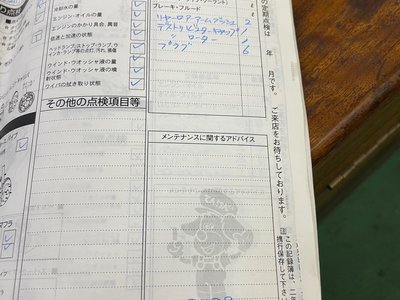 冷却水の量
エンジン・オイルの量
エンジンのかかり具合、異音
低速と加速の状態
ヘッドランプ、ストップ・ランプ、ウ
インカ等の点灯、汚れ、損傷
ウインド・ウオッシャ液の量
ウインド・ウオッシャ液の噴
射状態
ワイパの拭き取り状態
その他の点検項目等
ブレーキ・フルード
リヤロアアームブッシュ 2
デストリビューターキャップ 1
〃 ローター 1
プラグ 6
メンテナンスに関するアドバイス
の定期点検は
年
月です。
ご来店をお待ちしております。
この記録簿は、二年
携行保存して下さい
マフラ